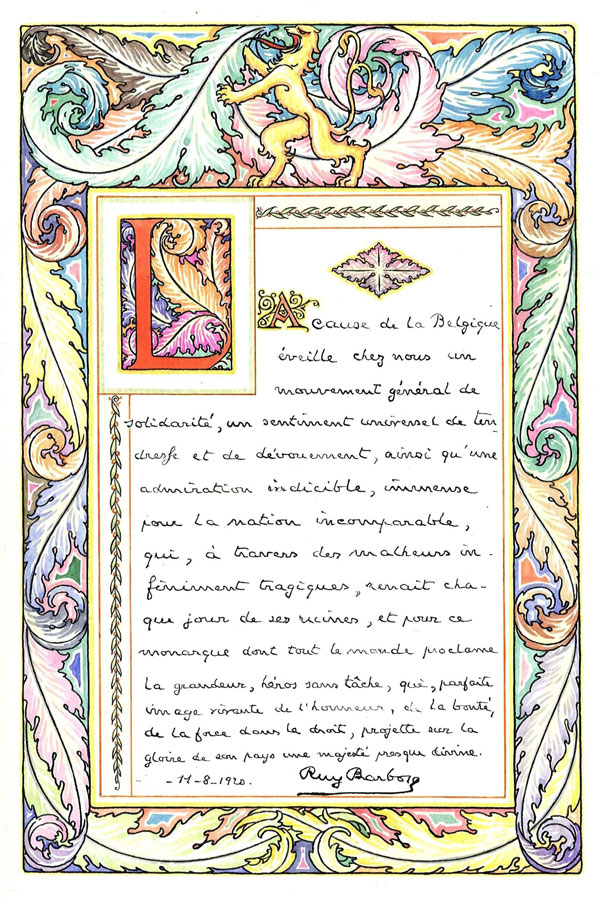 LA cause de la Belgique
éveille chez nous un
mouvement général de
solidarité, un sentiment universel de ten-
dresse et de dévouement, ainsi qu'une
admiration indicible, immense
pour la nation incomparable,
qui, à travers des malheurs in-
finiment tragiques, renait cha-
que jour de ses ruines, et pour ce
monarque dont tout le monde proclame
la grandeur, héros sans tâche, qui, parfaite
image vivante de l'honneur, de la bonté,
de la force dans le droit, projette sur la
gloire de son pays une majesté presque divine.
-11-8-1920. Ruy Barbosa